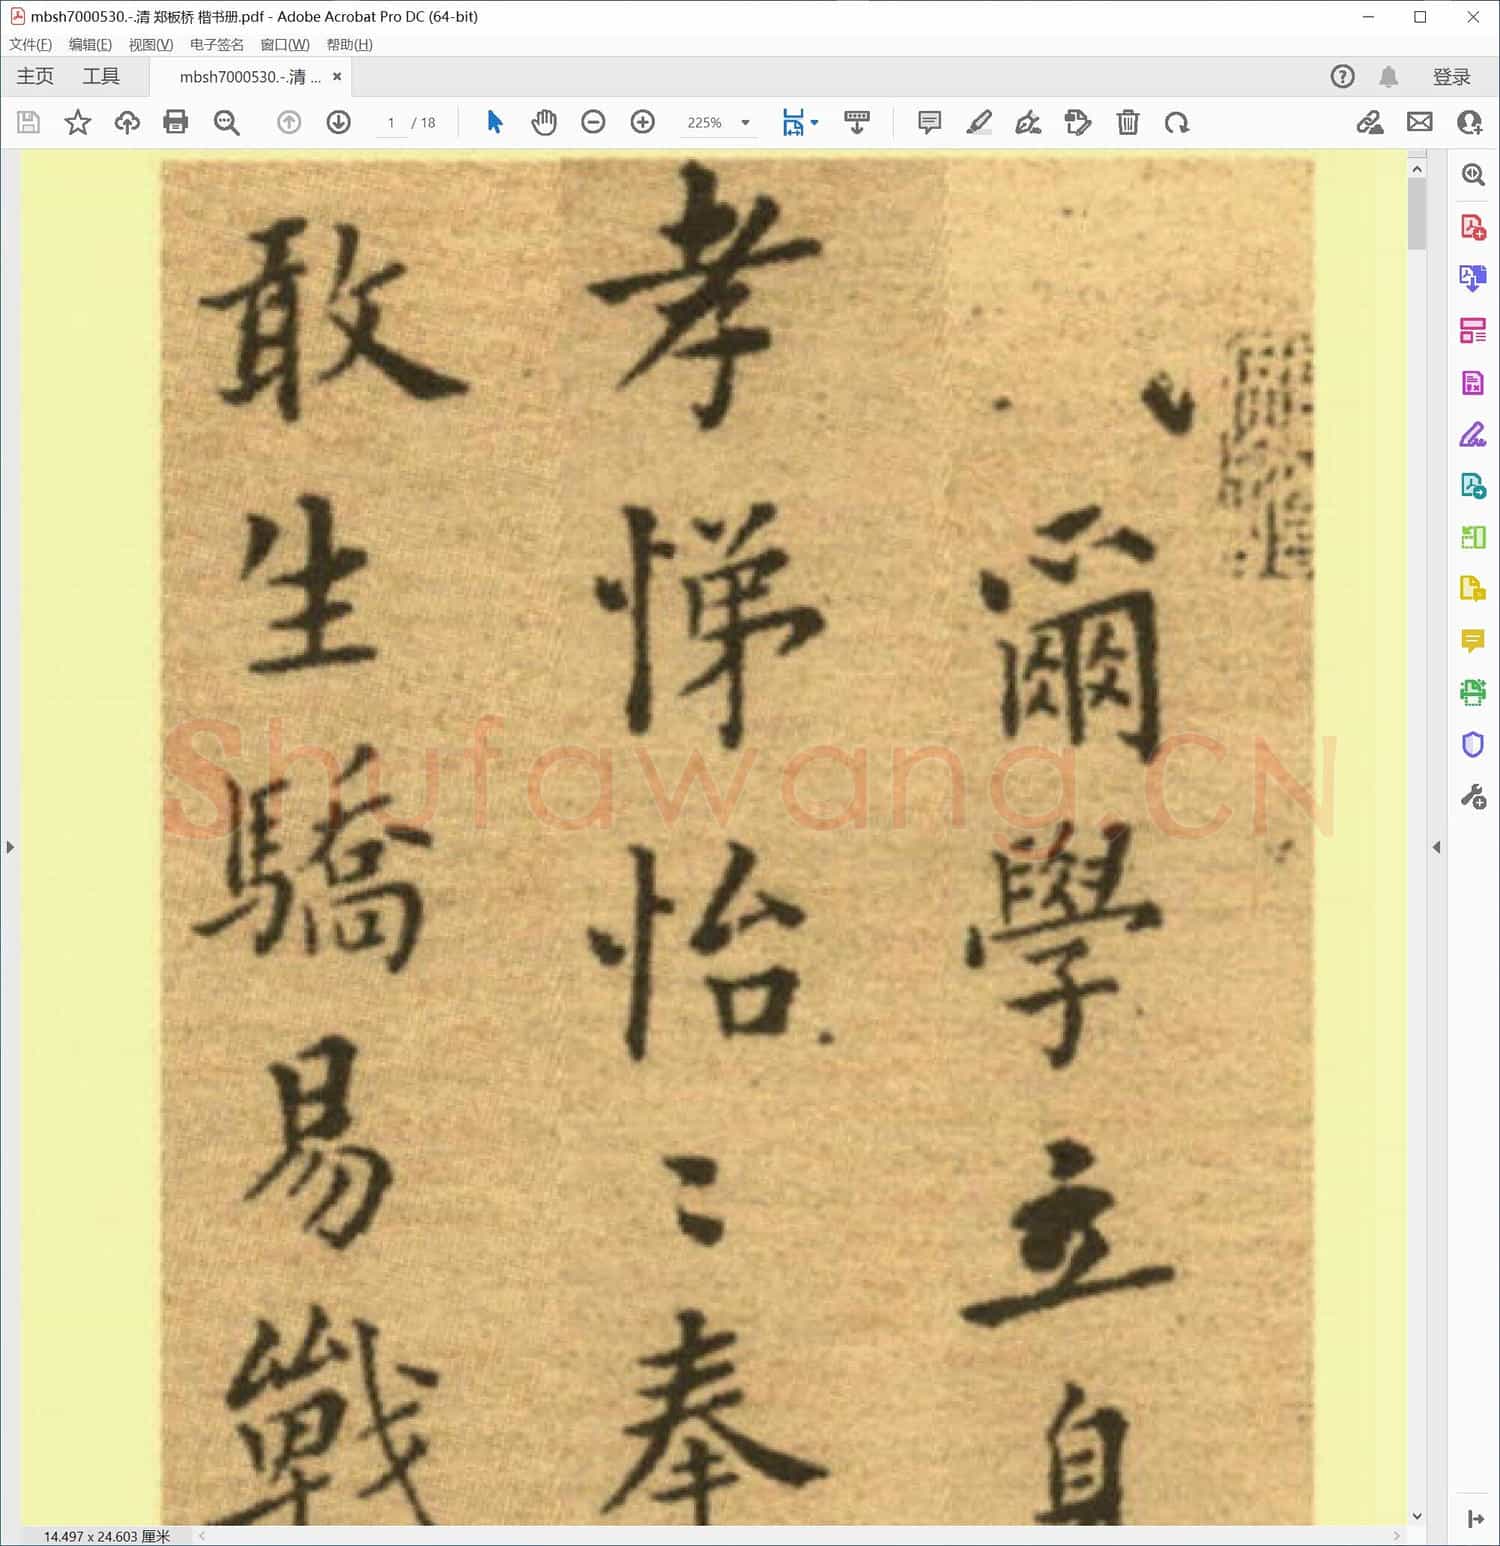 mbsh7000530.-.清 郑板桥 楷书册.pdf - Adobe Acrobat Pro DC (64-bit)
文件(F) 编辑(E) 视图(V) 电子签名 窗口(W) 帮助(H)
主页 工具 mbsh7000530.-.清 ... × 登录
1 / 18 225%
爾學立身
孝悌怡〻奉
敢生驕易戰
Shufawang.CN
14.497 x 24.603 厘米